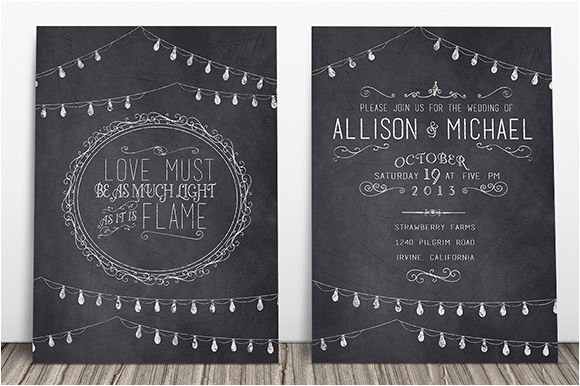 LOVE MUST
BE AS MUCH LIGHT
AS IT IS FLAME
PLEASE JOIN US FOR THE WEDDING OF
ALLISON & MICHAEL
OCTOBER
SATURDAY 19 AT FIVE PM
2013
STRAWBERRY FARMS
1240 PILGRIM ROAD
IRVINE, CALIFORNIA